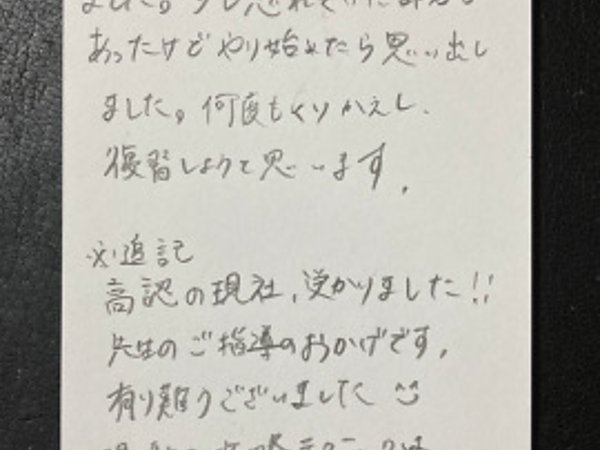 ました。少し忘れていた部分も
あったけどやり始めたら思い出し
ました。何度もくりかえし、
復習しようと思います。
※追記
高認の現社、受かりました!!
先生のご指導のおかげです。
有り難うございました